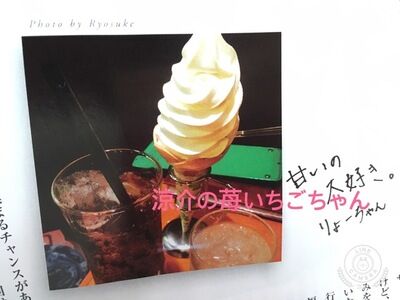 Photo by Ryosuke
甘いの
大好き。
りょーちゃん
涼介の苺いちごちゃん
チャンスがあ